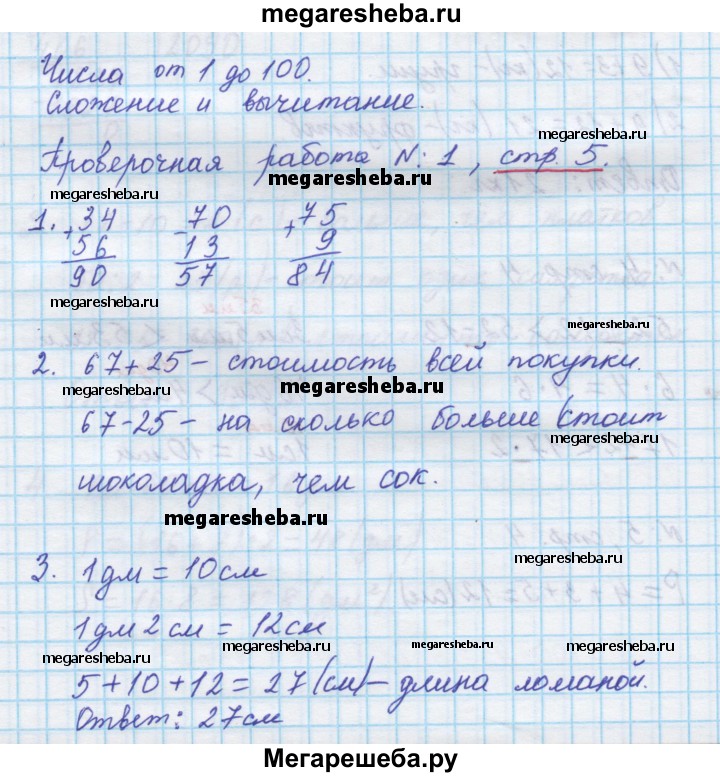 megaresheba.ru
Числа от 1 до 100.
Сложение и вычитание.
megaresheba.ru
megaresheba.ru
Проверочная работа N: 1, стр. 5.
megaresheba.ru
megaresheba.ru
1. +34 -70 +75
56 13 9
90 57 84
megaresheba.ru
megaresheba.ru
2. 67+25 – стоимость всей покупки.
megaresheba.ru
megaresheba.ru
67-25 – на сколько больше стоит
megaresheba.ru
шоколадка, чем сок.
megaresheba.ru
megaresheba.ru
3. 1дм = 10см
megaresheba.ru
1дм 2см = 12см
megaresheba.ru
megaresheba.ru
megaresheba.ru
5+10+12=27(см) – длина ломаной.
Ответ: 27см
Мегарешеба.ру